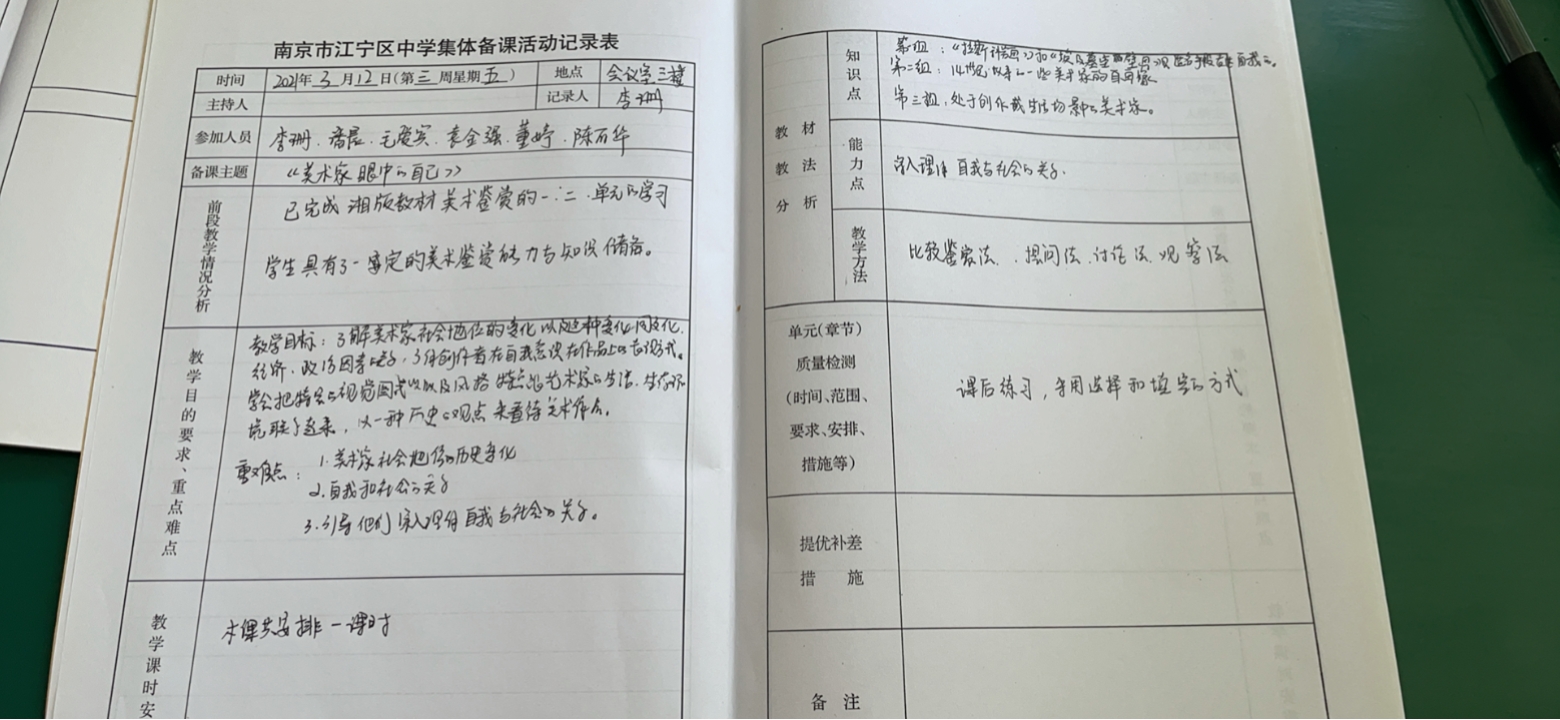 南京市江宁区中学集体备课活动记录表
时间 2021年3月12日(第三周星期五) 地点 会议室三楼
主持人 记录人 李珊
参加人员 李珊、 董婷、陈百华
备课主题 《美术家眼中的自己》
前段教学情况分析
已完成湘版教材美术鉴赏的一、二、单元的学习
学生具有了一定的美术鉴赏能力与知识储备。
教学目的要求、重点难点
教学目标：了解美术家社会地位的变化以及这种变化同文化、
经济、政治因素关系，自我意识在作品上的表现方式。
学会把特定的视觉图式以及风格特点和艺术家的生活、生存环
境联系起来，以一种历史的观点来看待美术作品。
重难点： 1.美术家社会地位的历史变化
2.自我和社会的关系
3.引导他们深入理解自我与社会的关系。
教学课时安
本课共安排一课时
教材教法分析
知识点
第一组：
第二组：14世纪以来的一些美术家的自画像
第三组，处于创作或生活场景中的美术家。
能力点
深入理解自我与社会的关系.
教学方法
比较鉴赏法、提问法、讨论法、观察法
单元(章节)
质量检测
(时间、范围、
要求、安排、
措施等)
课后练习，采用选择和填空的方式
提优补差
措 施
备 注